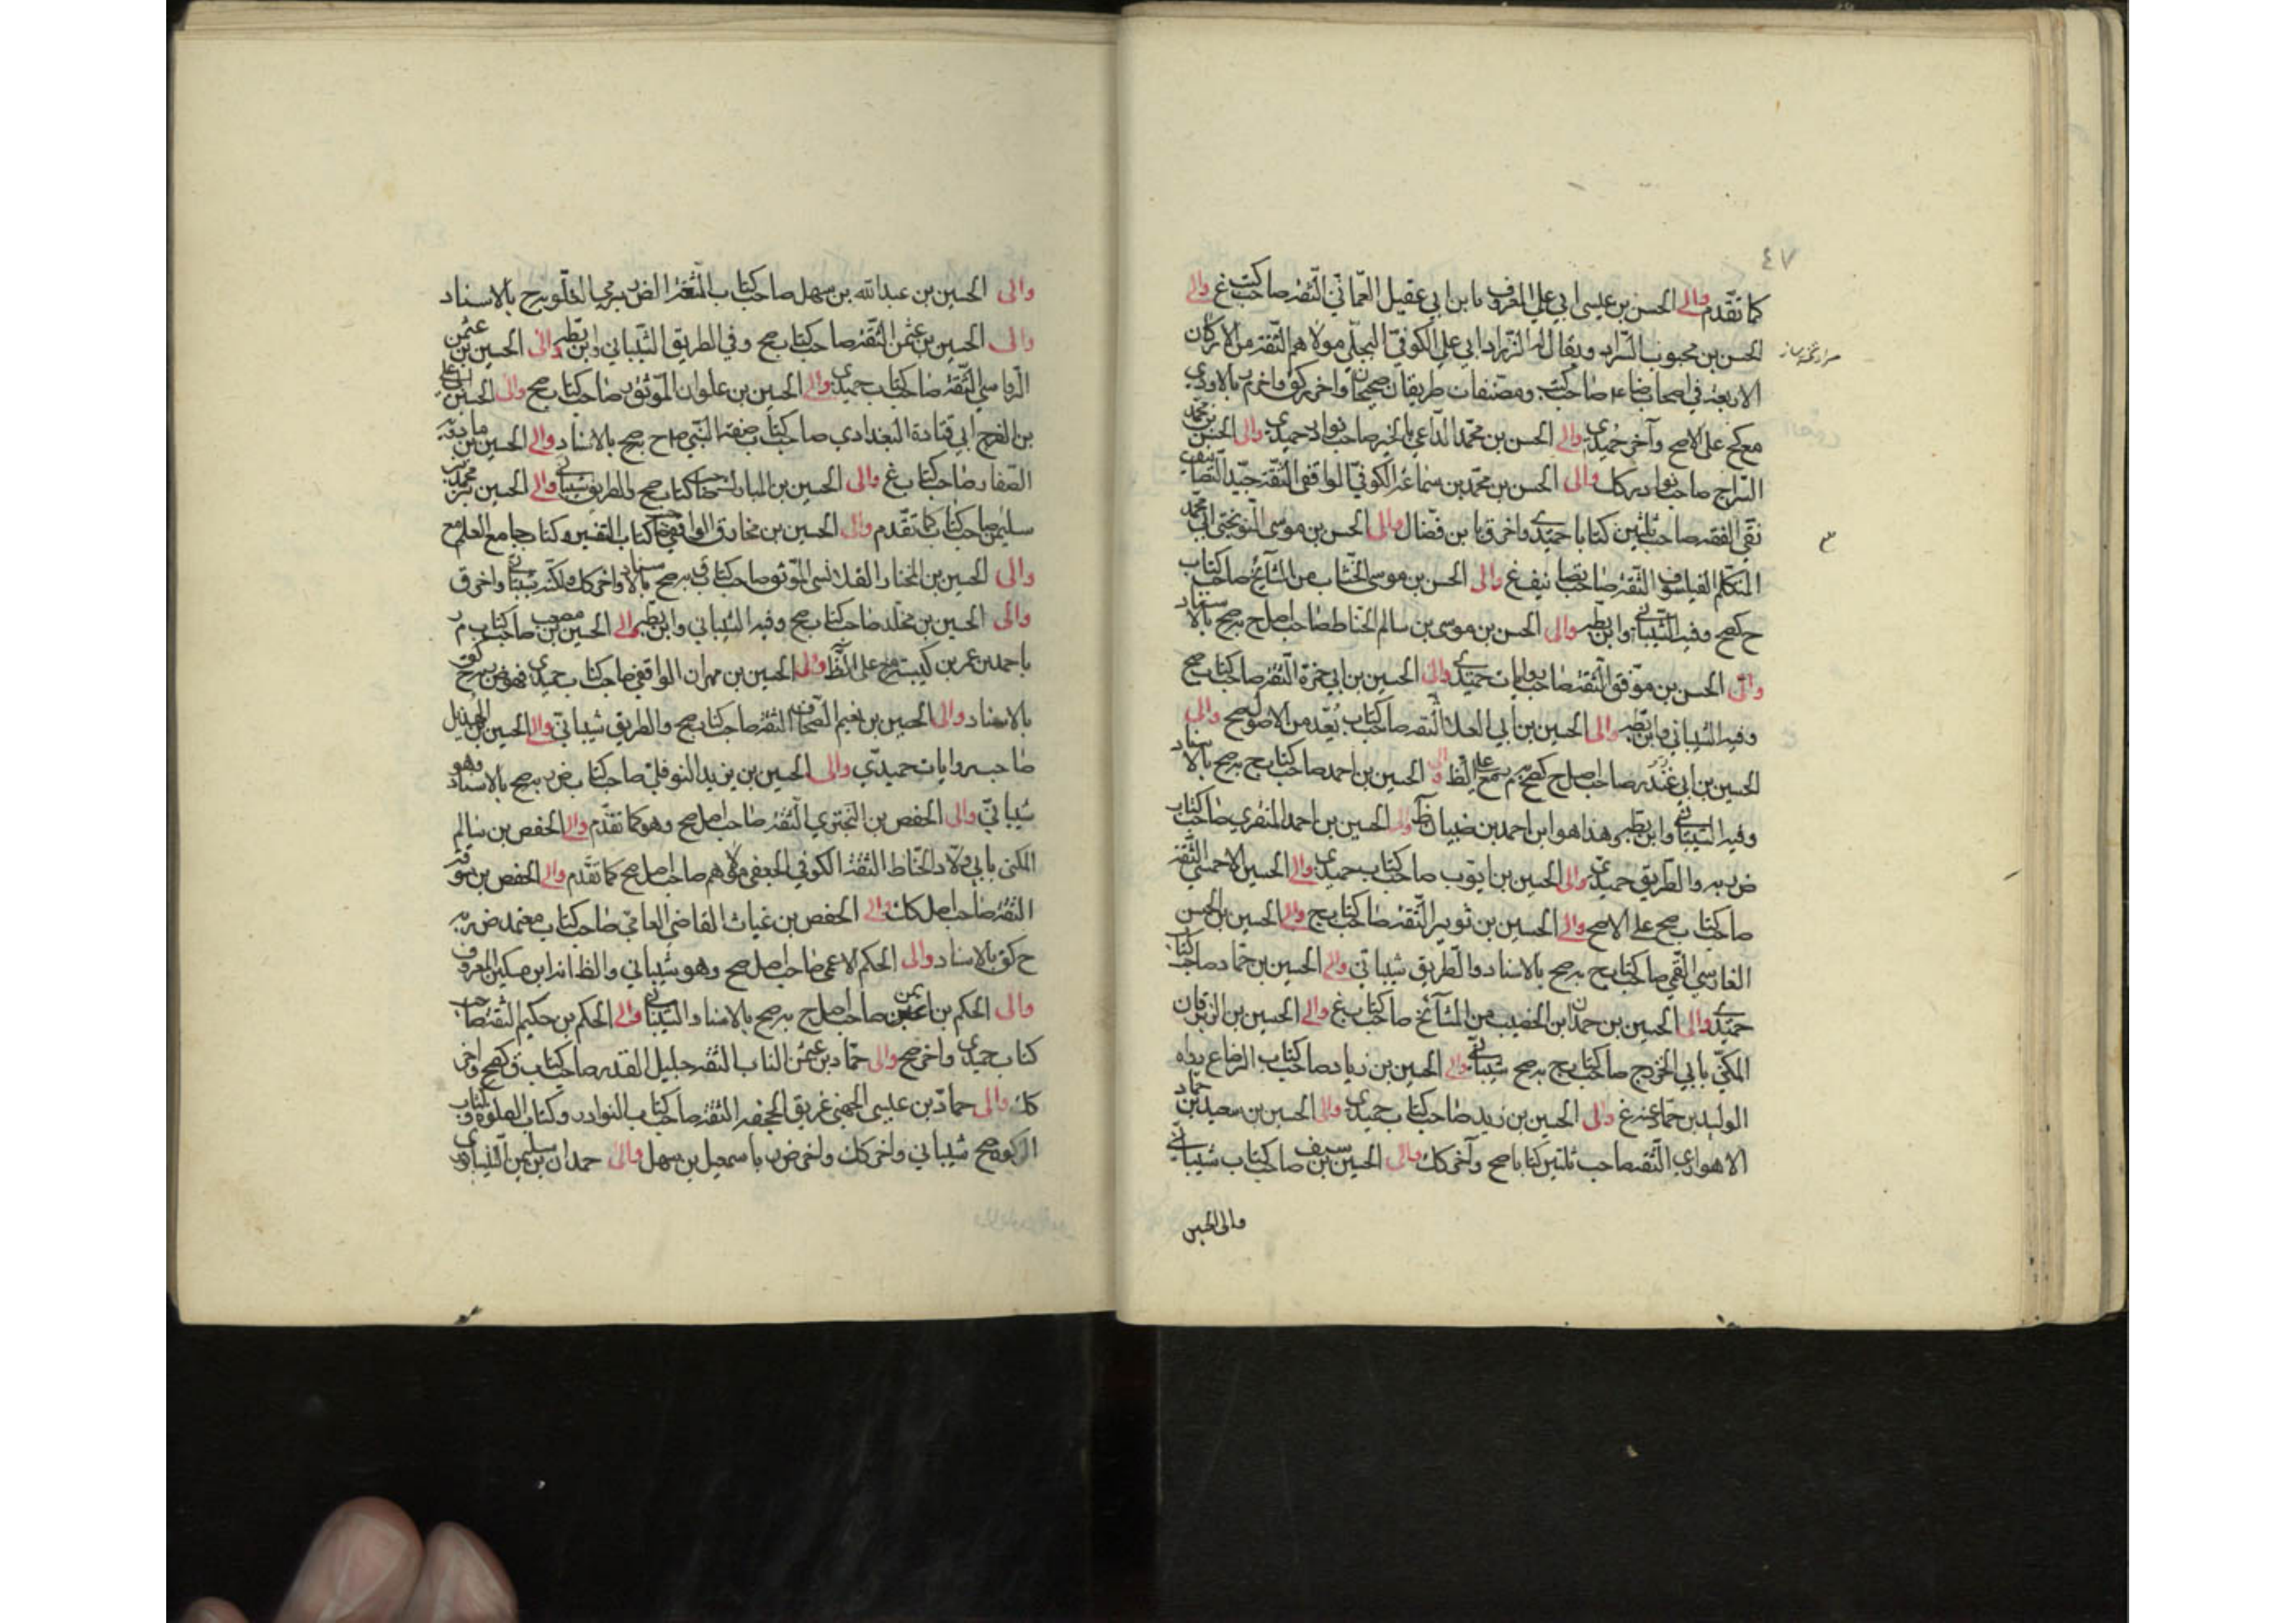 ٤٧
كما تقدم والى الحسن بن عيسى ابي علي المعروف بابن ابي عقيل العماني الثقة صاحب كتب غ والى
الحسن بن محبوب السراد ويقال له الزراد ابي علي الكوفي البجلي مولاهم الثقة من الاركان
الاربعة في اصحاب ضا ع صاحب كتب ومصنفات طريقان صحيحان واخر كق واخر م بالاودي
مع كح على الاصح وآخر حميدي والى الحسن بن محمد الداعي بالخير صاحب نوادر حميدي والى الحسن بن محمد
السراج صاحب نوادر كك والى الحسن بن محمد بن سماعة الكوفي الواقفي الثقة جيد التصانيف
نقي الفقه صاحب ثلثين كتابا حميدي واخر ق بابن فضال والى الحسن بن موسى النوبختي ابي محمد
المتكلم الفيلسوف الثقة صاحب تصانيف غ والى الحسن بن موسى الخشاب من المشايخ صاحب كتاب
ح كصح وفيه الشيباني وابن بطه والى الحسن بن موسى بن سالم الحناط صاحب اصل ح بل صح بالاسناد
والى الحسن بن موفق الثقة صاحب روايات حميدي والى الحسين بن ابي حمزة الثقة صاحب كتاب صح
وفيه الشيباني وابن بطه والى الحسين بن ابي العلا الثقة صاحب كتاب يعد من الاصول صح والى
الحسين بن ابي غندر صاحب اصل ح كصح بل م مع على الظ والى الحسين بن احمد صاحب كتاب ح بل صح بالاسناد
وفيه الشيباني وابن بطه وهذا هو ابن احمد بن ضبيان ظ والى الحسين بن احمد المنقري صاحب كتاب
ض به والطريق حميدي والى الحسين بن ايوب صاحب كتاب حميدي والى الحسين الاحمسي الثقة
صاحب كتاب صح على الاصح والى الحسين بن ثوير الثقة صاحب كتاب ح والى الحسين بن الحسن
الفارسي القمي صاحب كتاب ح بل صح بالاسناد والطريق شيباني والى الحسين بن حماد صاحب كتاب
حميدي والى الحسين بن حمدان ابن الخصيب من المشايخ صاحب كتاب غ والى الحسين بن الزبرقان
المكنى بابي الخزرج صاحب كتاب ح بل صح شيباني والى الحسين بن زياد صاحب كتاب الرضاع رواه
الوليد بن حماد عنه غ والى الحسين بن زيد صاحب كتاب حميدي والى الحسين بن سعيد بن حماد
الاهوازي الثقة صاحب ثلثين كتابا صح وآخر كك والى الحسين بن سيف صاحب كتاب شيباني
والى الحسين
والى الحسين بن عبدالله بن سهل صاحب كتاب المتعة الض يرمى الغلو ح بالاسناد
والى الحسين بن عثمن الثقة صاحب كتاب صح وفي الطريق الشيباني وابن بطه والى الحسين بن عثمن
الرواسي الثقة صاحب كتاب حميدي والى الحسين بن علوان الموثوق صاحب كتاب صح والى الحسين
بن الفرج ابي قتادة البغدادي صاحب كتاب صفة النبي ص ح بل صح بالاسناد والى الحسين بن مادنه
الصفار صاحب كتاب غ والى الحسين بن المبارك صاحب كتاب صح والطريق شيباني والى الحسين بن محمد بن
سليمن صاحب كتاب كما تقدم والى الحسين بن مخارق الواقفي صاحب كتاب التفسير وكتاب جامع العلم مح
والى الحسين بن المختار القلانسي الموثق صاحب كتاب ق بل صح بالاسناد واخر كك ولكنه شيباني واخر ق
والى الحسين بن مخلد صاحب كتاب صح وفيه الشيباني وابن بطه والى الحسين بن مصعب صاحب كتاب م
باحمد بن عمر بن كيسبه مح على الظ والى الحسين بن مهران الواقفي صاحب كتاب حميدي فهو ض بل كق
بالاسناد والى الحسين بن نعيم الصحاف الثقة صاحب كتاب صح والطريق شيباني والى الحسين بن الهذيل
صاحب روايات حميدي والى الحسين بن يزيد النوفلي صاحب كتاب ض بل صح بالاسناد وهو
شيباني والى الحفص بن البختري الثقة صاحب اصل صح وهو كما تقدم والى الحفص بن سالم
المكنى بابي ولاد الحناط الثقة الكوفي الجعفي مولاهم صاحب اصل صح كما تقدم والى الحفص بن سوقة
الثقة صاحب اصل كك والى الحفص بن غياث القاضي العامي صاحب كتاب معتمد ض به
ح كق بالاسناد والى الحكم الاعمى صاحب اصل صح وهو شيباني والظ انه ابن مسكين المعروف
والى الحكم بن ايمن صاحب اصل ح بل صح بالاسناد الشيباني والى الحكم بن حكيم الثقة صاحب
كتاب حميدي واخر صح والى حماد بن عثمن الناب الثقة جليل القدر صاحب كتاب ق كصح واخر
كك والى حماد بن عيسى الجهني غريق الجحفة الثقة صاحب كتاب النوادر وكتاب الصلوة وكتاب
الزكوة صح شيباني واخر كك واخر ض باسمعيل بن سهل والى حمدان بن سليمن النيسابوري